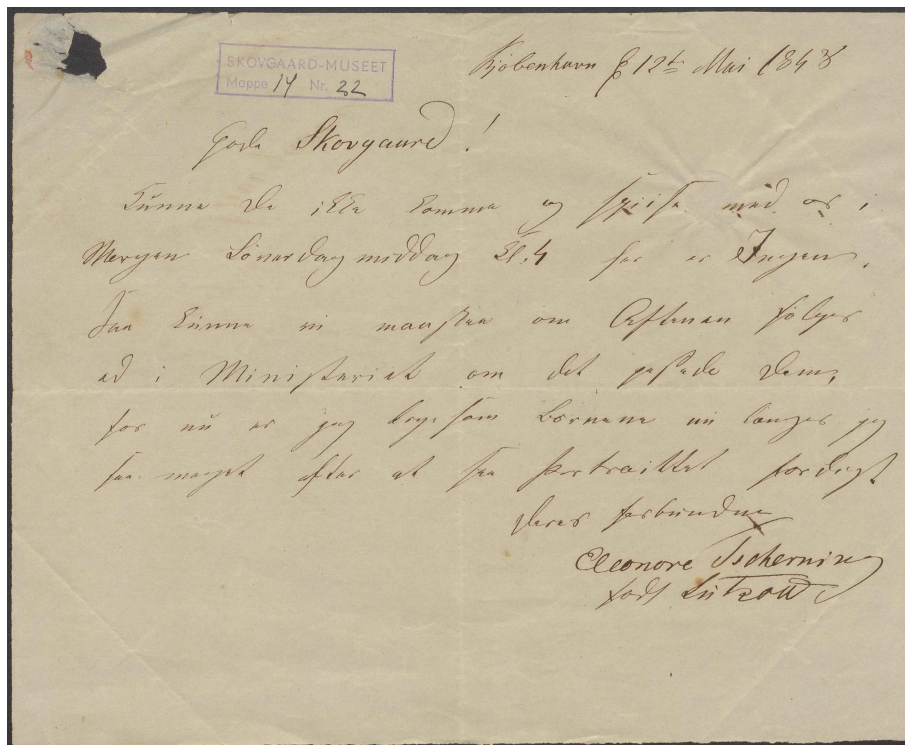 SKOVGAARD-MUSEET
Mappe 14 Nr. 22
Kjøbenhavn d 12te Mai 1848
Gode Skovgaard!
Kunne De ikke komme og spise med os i
Morgen Löverdag middag Kl: 4 her er Ingen.
Saa kunne vi maaskee om Aftenen følges
ad i Ministeriet om det passede Dem,
for nu er jeg som Børnene nu længes jeg
saa meget efter at see Portraittet færdigt.
Deres forbundne
Eleonore Tscherning
født Lützow